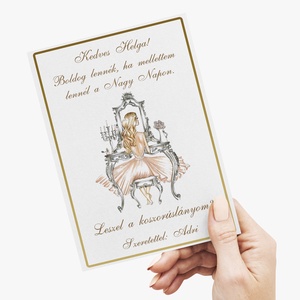 Kedves Helga!
Boldog lennék, ha mellettem
lennél a Nagy Napon.
Leszel a koszorúslányom?
Szeretettel: Adri